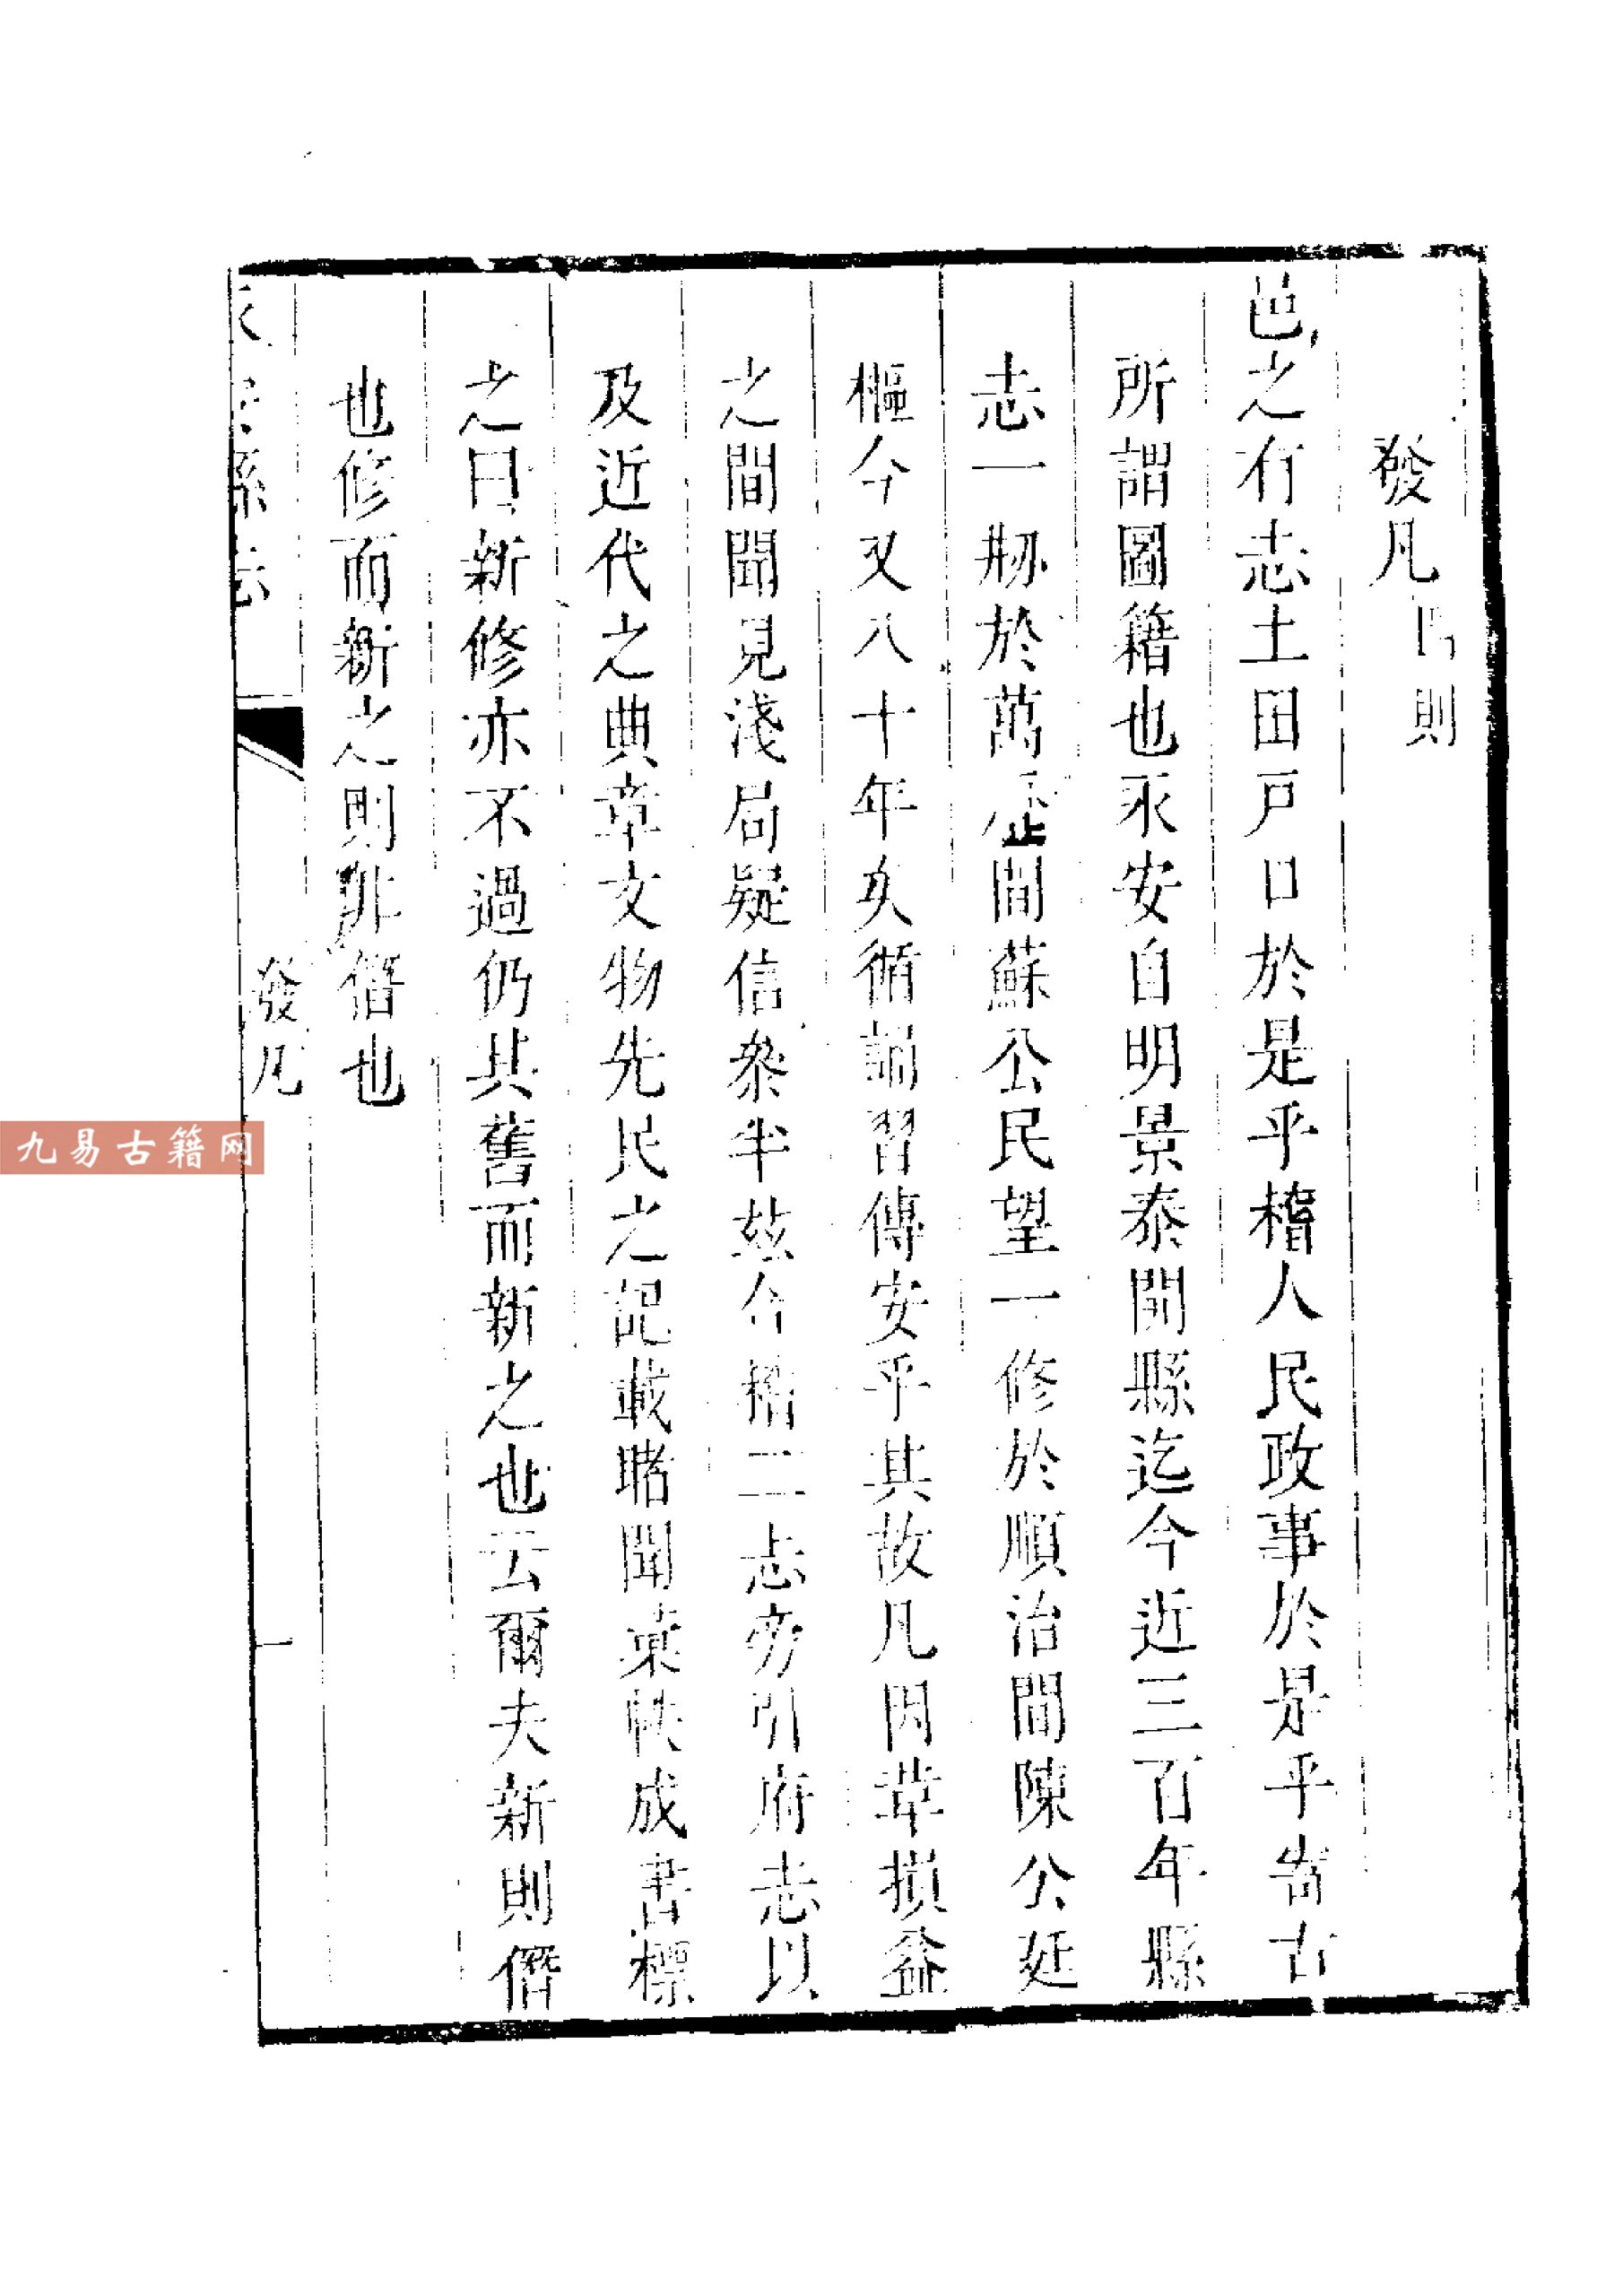 發凡四則
邑之有志土田戸口於是乎稽人民政事於是乎耑古
所謂圖籍也永安自明景泰開縣迄今近三百年縣
志一剏於萬歴間蘇公民望一修於順治間陳公廷
樞今又八十年矣循誦習傳安乎其故凡因革損益
之間聞見淺局疑信叅半玆合稽二志旁引府志以
及近代之典章文物先民之記載睹聞彙帙成書標
之曰新修亦不過仍其舊而新之也云爾夫新則僭
也修而新之則非僭也
縣志
發凡
一
九易古籍网